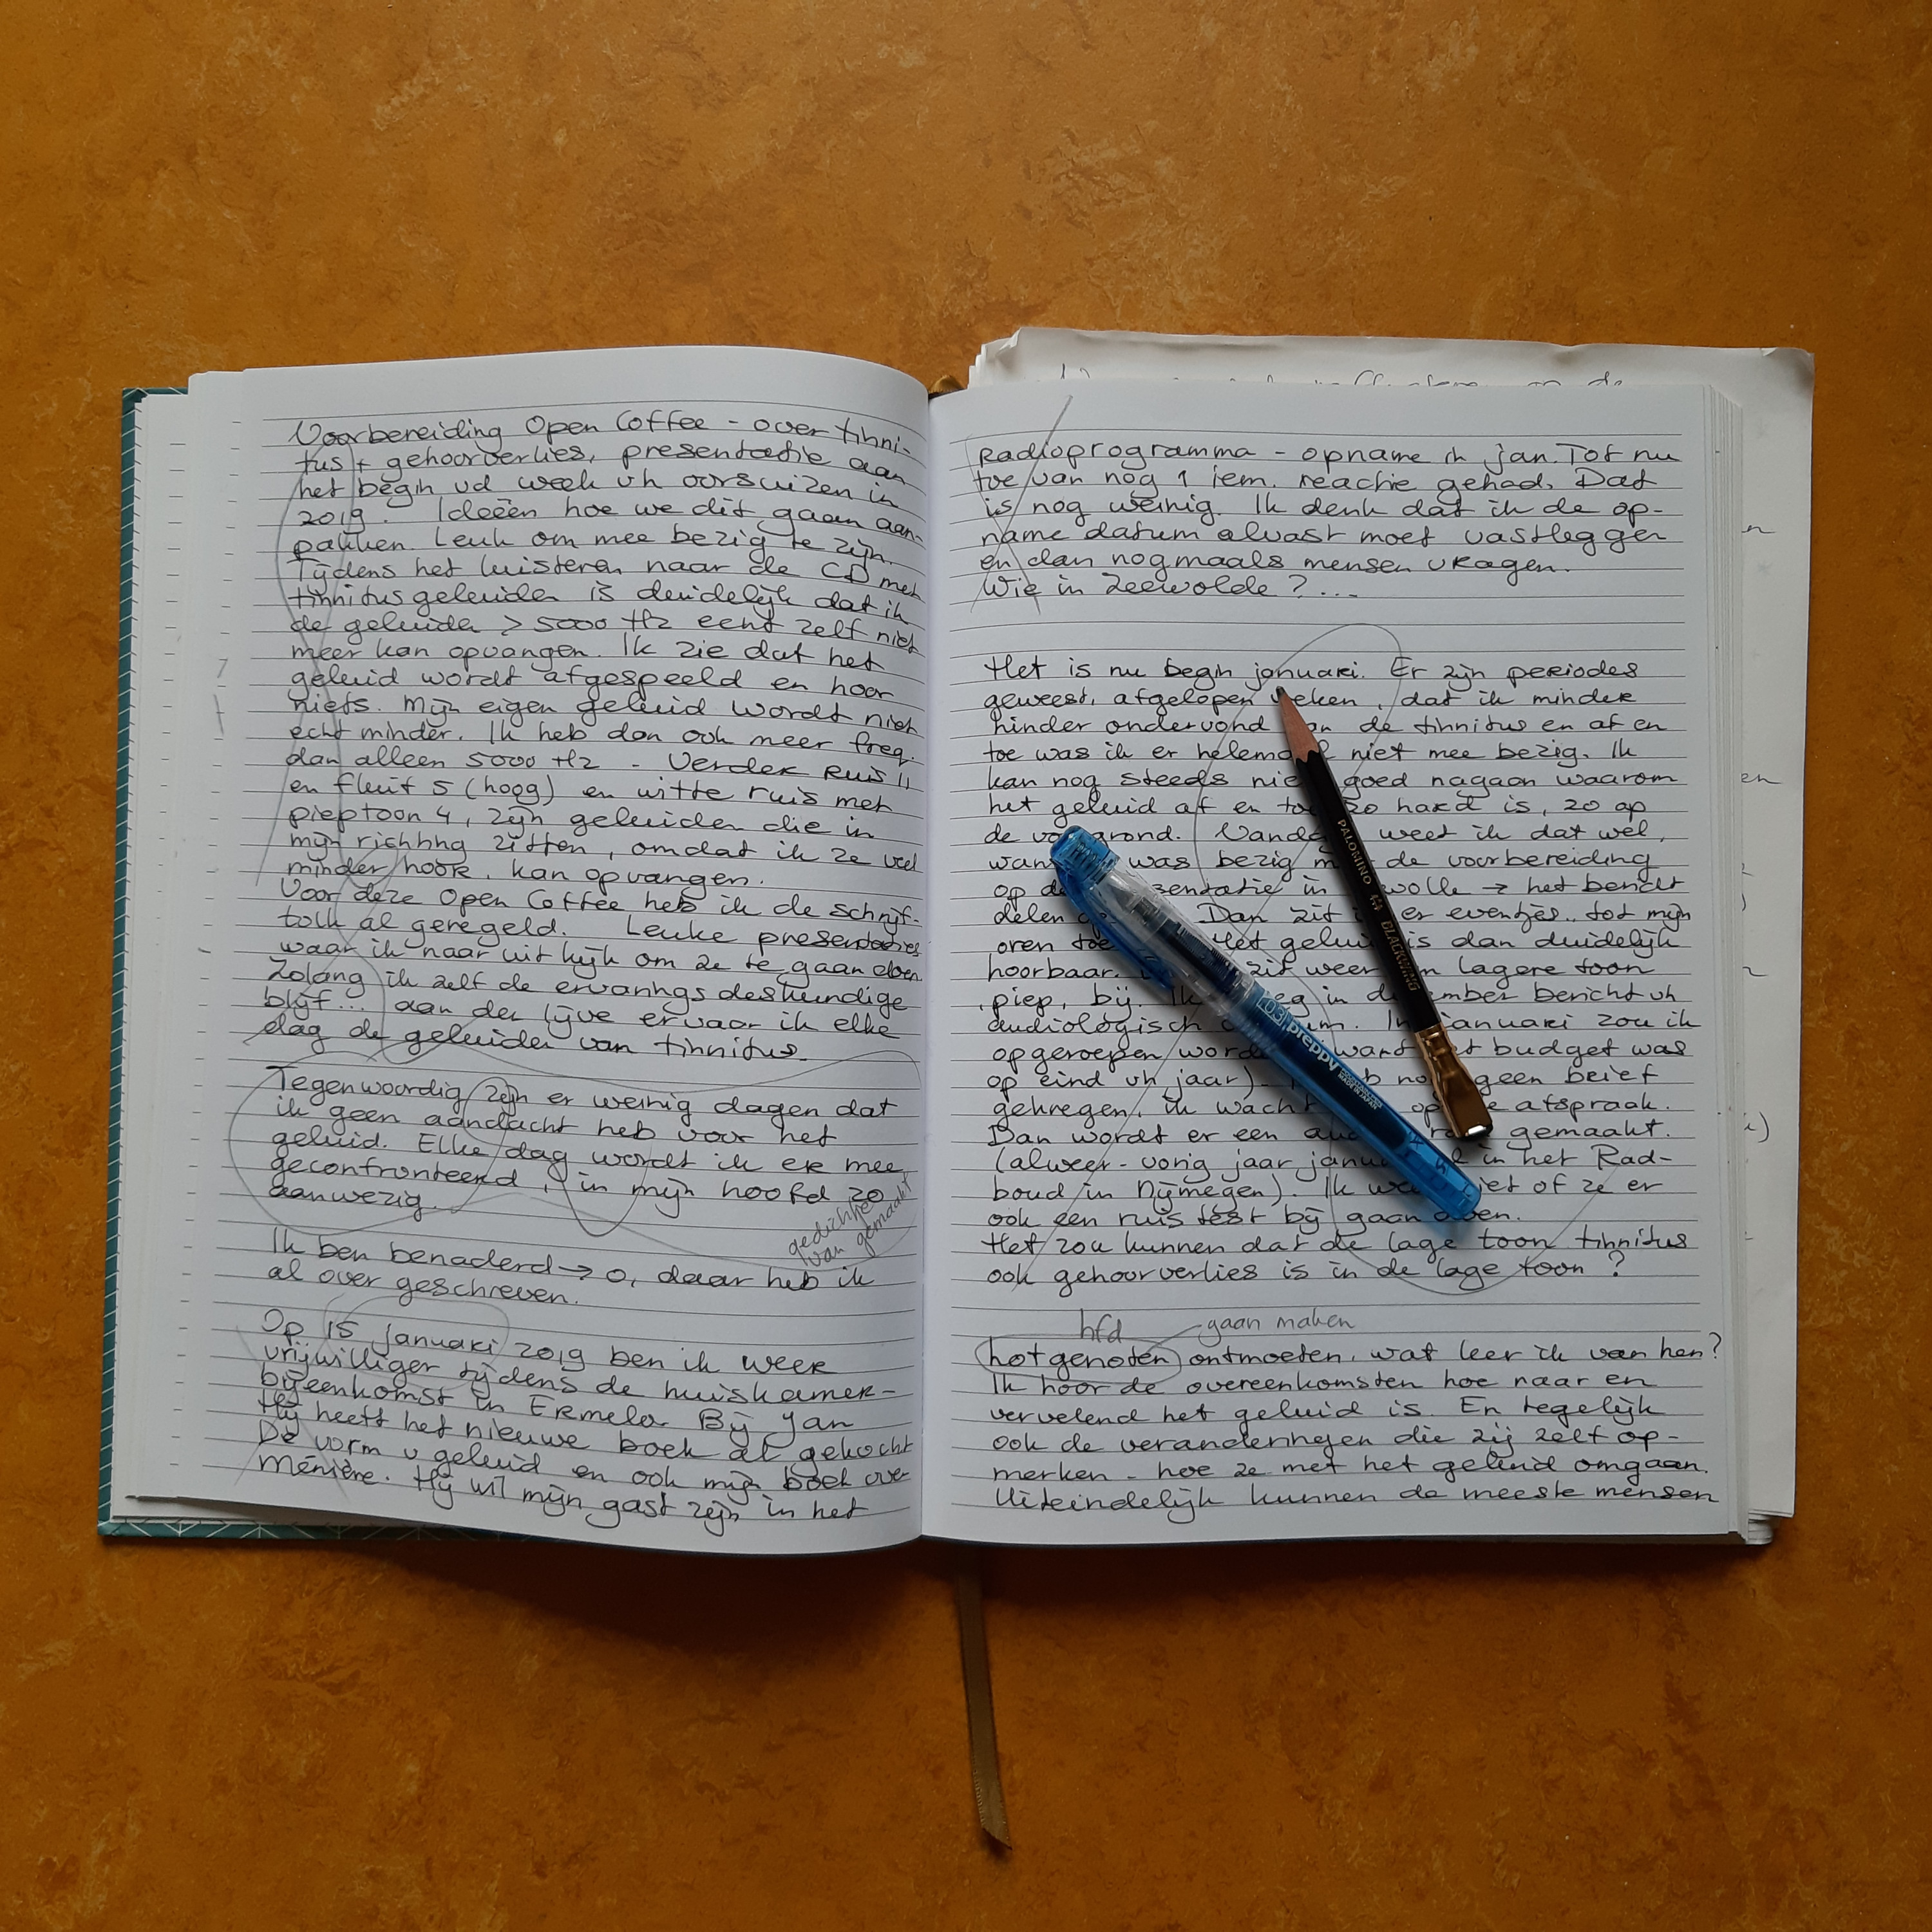 Voorbereiding Open Coffee - over tinni-
tus + gehoorverlies, presentatie aan
het begin vd week vh oorsuizen in
2019. Ideeën hoe we dit gaan aan-
pakken. Leuk om mee bezig te zijn.
Tijdens het luisteren naar de CD met
tinnitusgeluiden is duidelijk dat ik
de geluiden > 5000 Hz echt zelf niet
meer kan opvangen. Ik zie dat het
geluid wordt afgespeeld en hoor
niets. Mijn eigen geluid wordt niet
echt minder. Ik heb dan ook meer freq.
dan alleen 5000 Hz - Verder Ruis 11
en fluit 5 (hoog) en witte ruis met
pieptoon 4, zijn geluiden die in
mijn richting zitten, omdat ik ze veel
minder hoor, kan opvangen.
Voor deze Open Coffee heb ik de schrijf-
tolk al geregeld. Leuke presentaties
waar ik naar uit kijk om ze te gaan doen.
Zolang ik zelf de ervaringsdeskundige
blijf... aan den lijve ervaar ik elke
dag de geluiden van tinnitus.
Tegenwoordig zijn er weinig dagen dat
ik geen aandacht heb voor het
geluid. Elke dag wordt ik er mee
geconfronteerd, in mijn hoofd zo
aanwezig.
gedichtje
van gemaakt
Ik ben benaderd → o, daar heb ik
al over geschreven.
Op 15 januari 2019 ben ik weer
vrijwilliger tijdens de huiskamer-
bijeenkomst in Ermelo. Bij Jan
Hij heeft het nieuwe boek al gekocht
De vorm v geluid en ook mijn boek over
Ménière. Hij wil mijn gast zijn in het
Radioprogramma - opname in jan. Tot nu
toe van nog 1 iem. reactie gehad. Dat
is nog weinig. Ik denk dat ik de op-
name datum alvast moet vastleggen
en dan nogmaals mensen vragen.
Wie in Zeewolde? ...
Het is nu begin januari. Er zijn periodes
geweest, afgelopen weken, dat ik minder
hinder ondervond van de tinnitus en af en
toe was ik er helemaal niet mee bezig. Ik
kan nog steeds niet goed nagaan waarom
het geluid af en toe zo hard is, zo op
de voorgrond. Vandaag weet ik dat wel,
want was bezig met de voorbereiding
op de presentatie in Zwolle → het bericht
delen Dan zit er eventjes.. tot mijn
oren toe Het geluid is dan duidelijk
hoorbaar. zit weer een lagere toon
piep, bij. Ik kreeg in december bericht vh
audiologisch centrum. In januari zou ik
opgeroepen worden want het budget was
op eind vh jaar). Ik heb nog geen brief
gekregen, ik wacht op de afspraak.
Dan wordt er een gemaakt.
(alweer - vorig jaar januari al in het Rad-
boud in Nijmegen). Ik weet niet of ze er
ook een ruis test bij gaan doen.
Het zou kunnen dat de lage toon tinnitus
ook gehoorverlies is in de lage toon?
hfd gaan maken
lotgenoten ontmoeten, wat leer ik van hen?
Ik hoor de overeenkomsten hoe naar en
vervelend het geluid is. En tegelijk
ook de veranderingen die zij zelf op-
merken - hoe ze met het geluid omgaan.
Uiteindelijk kunnen de meeste mensen
PALOMINO BLACKWING
03 preppy
MADE IN JAPAN
op de
n
en